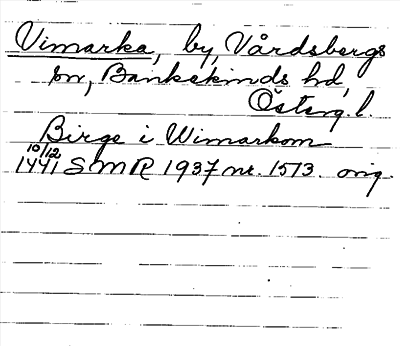 Vimarka, by, Vårdsbergs
sn, Bankekinds hd,
Österg. l.
Birge i Wimarkom
10/12
1441 SMR 1937 nr. 1513. orig.